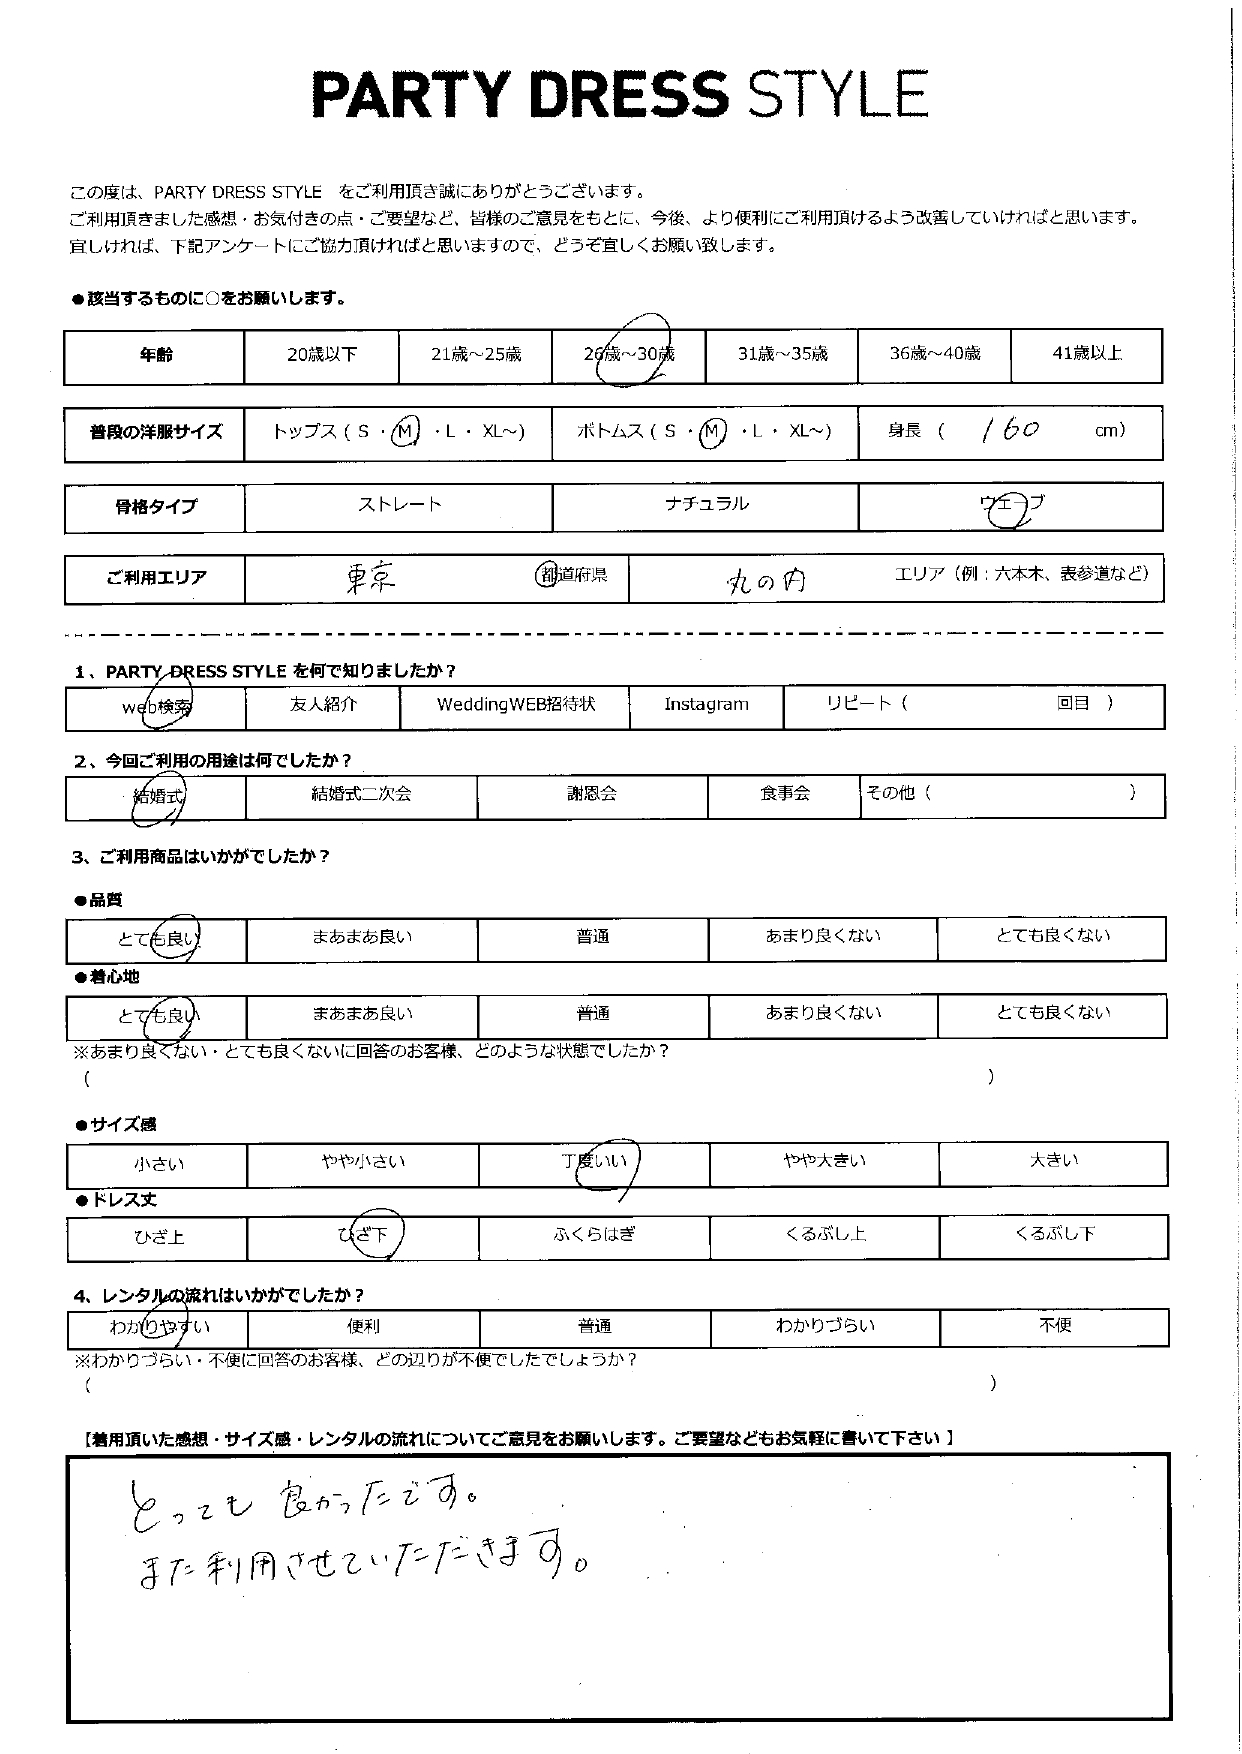 PARTY DRESS STYLE
この度は、PARTY DRESS STYLE をご利用頂き誠にありがとうございます。
ご利用頂きました感想・お気付きの点・ご要望など、皆様のご意見をもとに、今後、より便利にご利用頂けるよう改善していければと思います。
宜しければ、下記アンケートにご協力頂ければと思いますので、どうぞ宜しくお願い致します。
●該当するものに○をお願いします。
年齢 20歳以下 21歳～25歳 26歳～30歳 31歳～35歳 36歳～40歳 41歳以上
普段の洋服サイズ トップス（ S ・ M ・L ・ XL～) ボトムス（ S ・ M ・L ・ XL～) 身長 （ 160 cm）
骨格タイプ ストレート ナチュラル ウェーブ
ご利用エリア 東京 都道府県 丸の内 エリア（例：六本木、表参道など）
1、PARTY DRESS STYLE を何で知りましたか？
web検索 友人紹介 WeddingWEB招待状 Instagram リピート（ 回目 ）
2、今回ご利用の用途は何でしたか？
結婚式 結婚式二次会 謝恩会 食事会 その他（ ）
3、ご利用商品はいかがでしたか？
●品質
とても良い まあまあ良い 普通 あまり良くない とても良くない
●着心地
とても良い まあまあ良い 普通 あまり良くない とても良くない
※あまり良くない・とても良くないに回答のお客様、どのような状態でしたか？
（ ）
●サイズ感
小さい やや小さい 丁度いい やや大きい 大きい
●ドレス丈
ひざ上 ひざ下 ふくらはぎ くるぶし上 くるぶし下
4、レンタルの流れはいかがでしたか？
わかりやすい 便利 普通 わかりづらい 不便
※わかりづらい・不便に回答のお客様、どの辺りが不便でしたでしょうか？
（ ）
【着用頂いた感想・サイズ感・レンタルの流れについてご意見をお願いします。ご要望などもお気軽に書いて下さい 】
とっても良かったです。
また利用させていただきます。